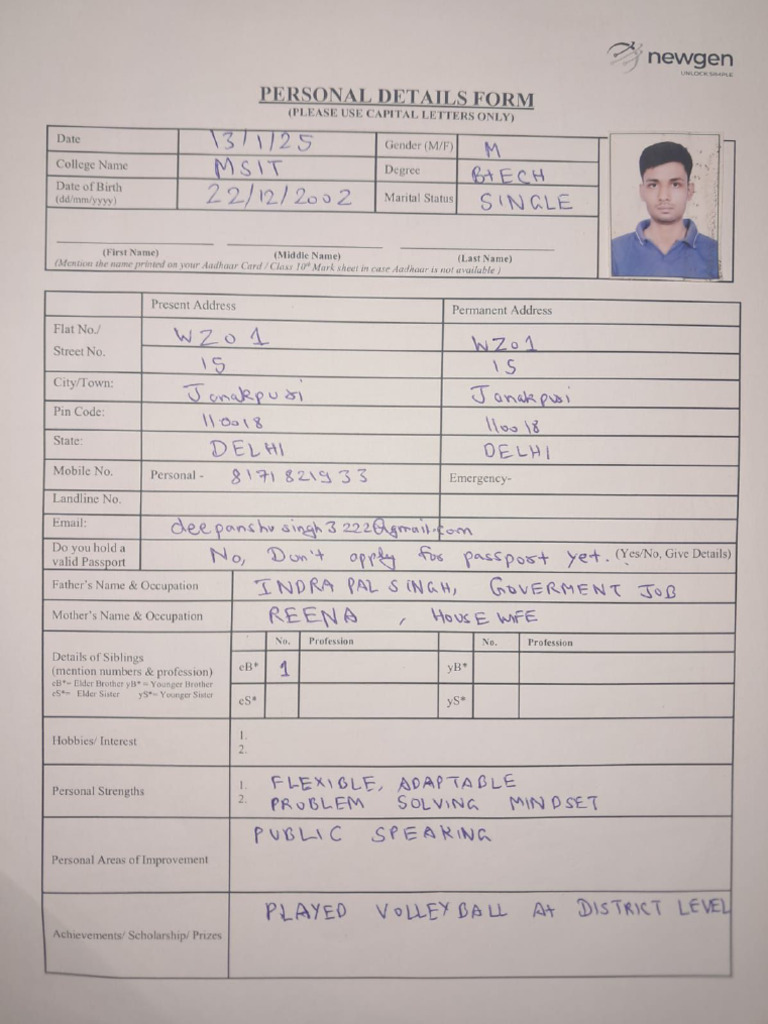 newgen
UNLOCK SIMPLE
PERSONAL DETAILS FORM
(PLEASE USE CAPITAL LETTERS ONLY)
Date 13/1/25 Gender (M/F) M
College Name MSIT Degree BtECH
Date of Birth (dd/mm/yyyy) 22/12/2002 Marital Status SINGLE
(First Name) (Middle Name) (Last Name)
(Mention the name printed on your Aadhaar Card / Class 10th Mark sheet in case Aadhaar is not available )
Present Address Permanent Address
Flat No./ WZ01 WZ01
Street No. 15 15
City/Town: Janakpuri Janakpuri
Pin Code: 110018 110018
State: DELHI DELHI
Mobile No. Personal - 8171821933 Emergency-
Landline No.
Email: deepanshusingh3222@gmail.com
Do you hold a valid Passport No, Don't apply for passport yet. (Yes/No, Give Details)
Father's Name & Occupation INDRA PAL SINGH, GOVERMENT JOB
Mother's Name & Occupation REENA , HOUSE WIFE
No. Profession No. Profession
Details of Siblings
(mention numbers & profession) eB* 1 yB*
eB*= Elder Brother yB*= Younger Brother
eS*= Elder Sister yS*= Younger Sister eS* yS*
Hobbies/ Interest 1.
2.
Personal Strengths 1. FLEXIBLE, ADAPTABLE
2. PROBLEM SOLVING MINDSET
Personal Areas of Improvement PUBLIC SPEAKING
Achievements/ Scholarship/ Prizes PLAYED VOLLEYBALL At DISTRICT LEVEL